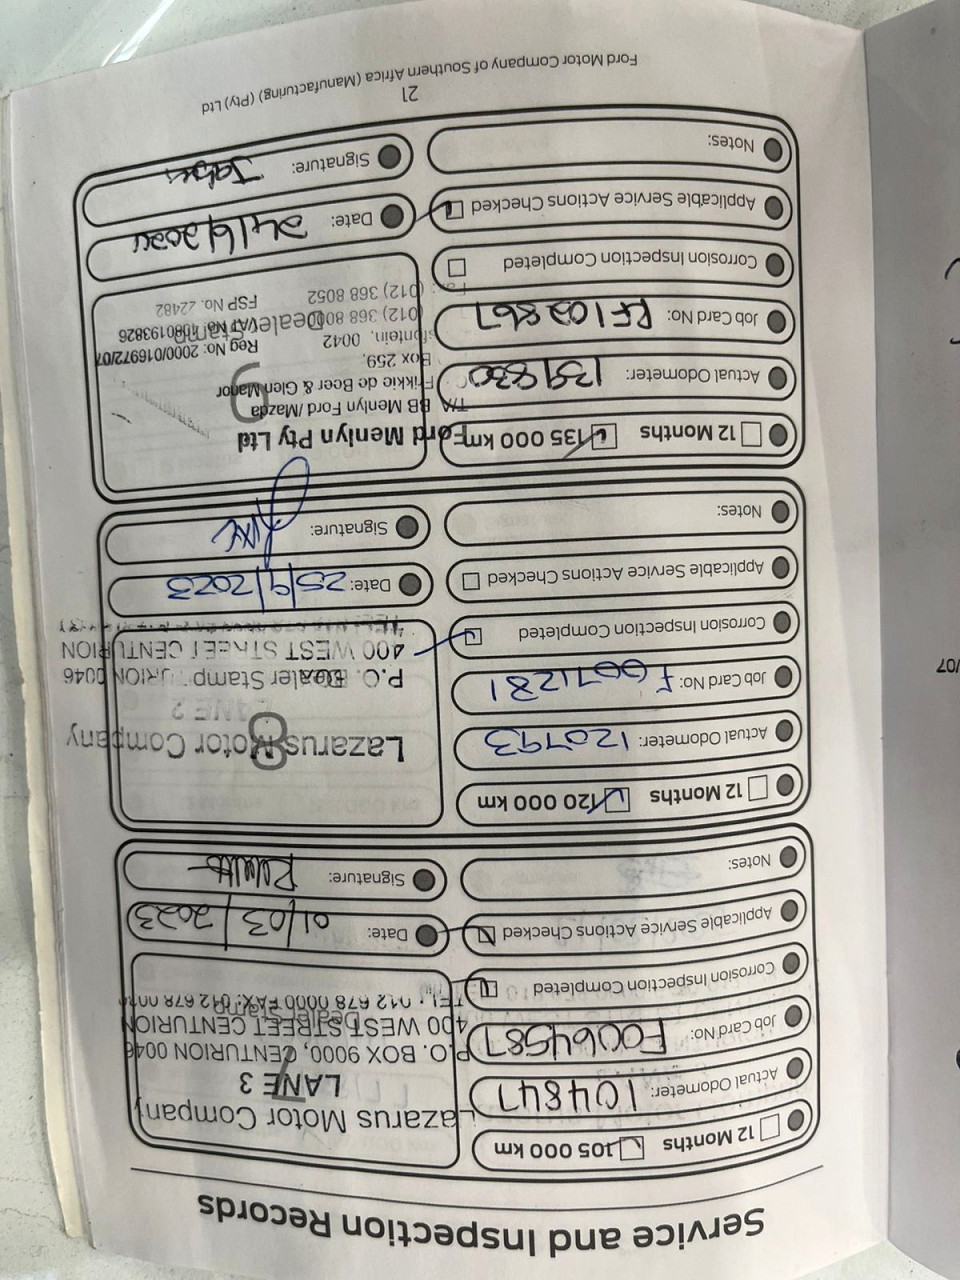 Service and Inspection Records
12 Months
105 000 km
Actual Odometer: 104847
Job Card No: F0064587
Corrosion Inspection Completed
Applicable Service Actions Checked
Notes:
Lazarus Motor Company
LANE 3
7
P.O. BOX 9000, CENTURION 0046
400 WEST STREET CENTURION
Dealer Stamp
TEL: 012 678 0000 FAX: 012 678
Date: 01/03/2023
Signature:
12 Months
120 000 km
Actual Odometer: 120793
Job Card No: F0071281
Corrosion Inspection Completed
Applicable Service Actions Checked
Notes:
Lazarus Motor Company
8
LANE 2
P.O.
Dealer Stamp
0046
400 WEST STREET CENTURION
Date: 25/9/2023
Signature:
12 Months
135 000 km
Actual Odometer: 139830
Job Card No: RF102867
Corrosion Inspection Completed
Applicable Service Actions Checked
Notes:
Ford Menlyn Pty Ltd
T/A BB Menlyn Ford/Mazda
9
Frikkie de Beer & Glen Manor
Box 259,
Reg No: 2000/016972/07
0042
VAT No
Dealer Stamp
(012) 368 8052
FSP No. 22482
Date: 24/6/2024
Signature:
21
Ford Motor Company of Southern Africa (Manufacturing) (Pty) Ltd
/07